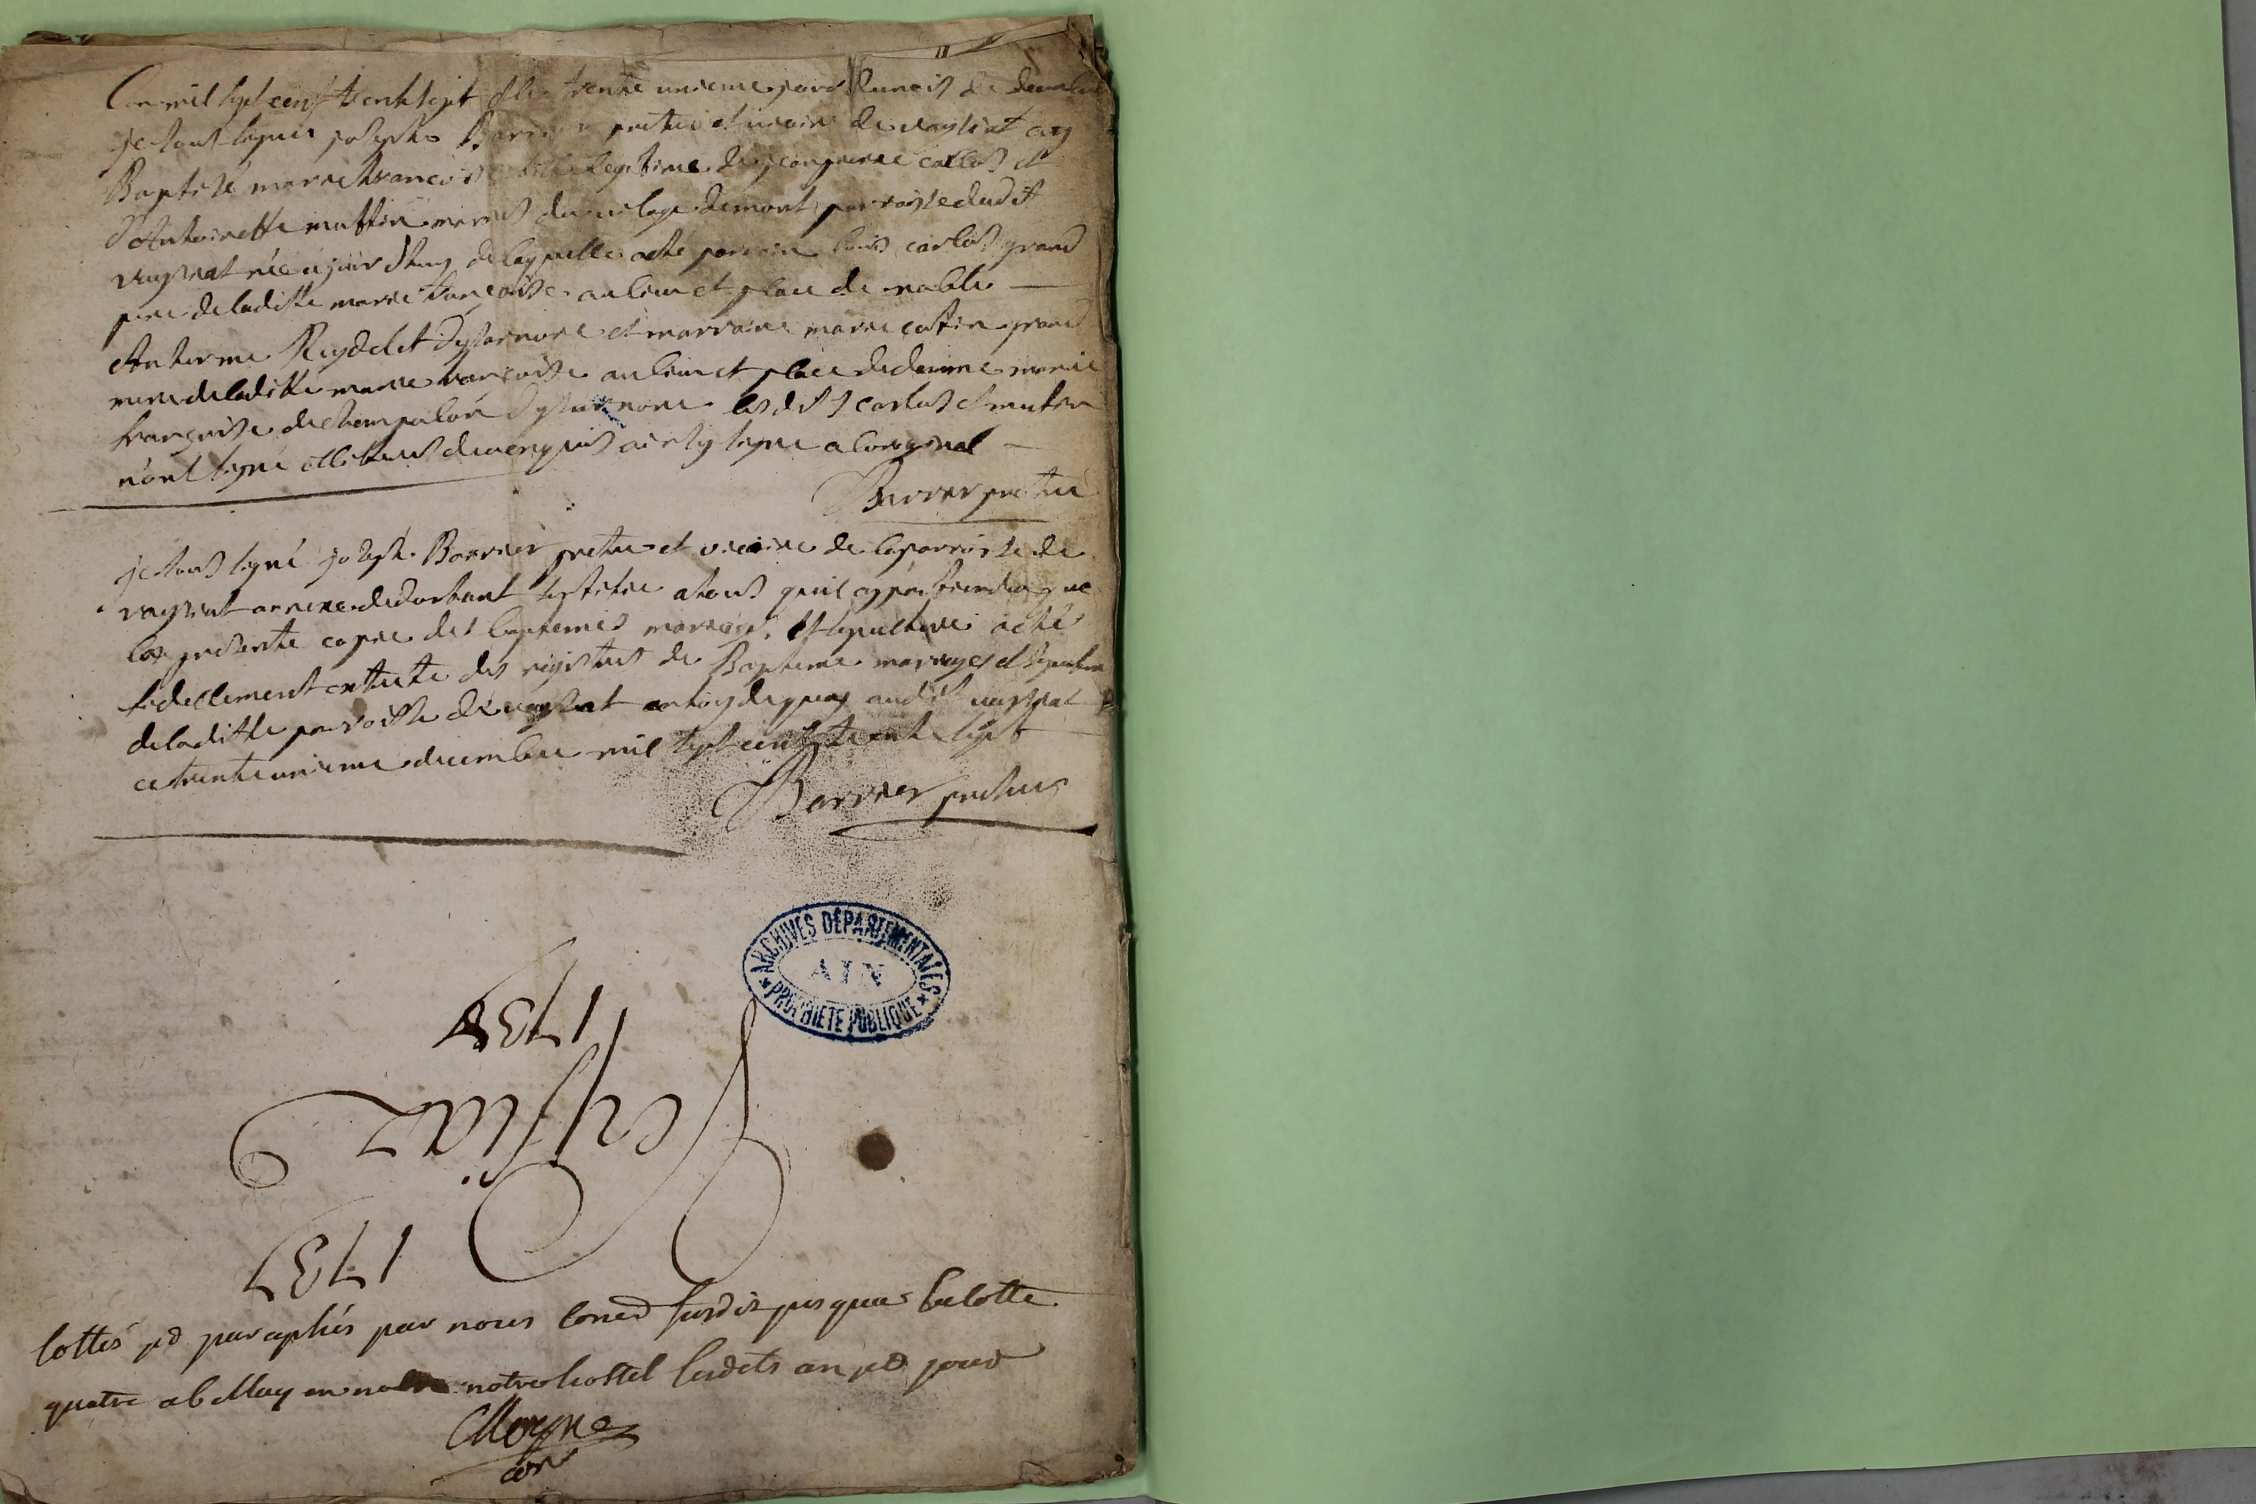 Lan mil sept cent trente sept et le trente unieme jour du mois de decembre
je sous signé joseph Barrier pretre et vicaire de veyziat ay
Baptisé marie francoise fille legitime de jean pierre carlod et
d'Antoinette muttin mariés du vilage de mont parroisse dudit
veyziat née aujourdhuy de laquelle a été parrain louis carlod grand
pere de laditte marie francoise au lieu et place de noble
Antermé Reydelet d'ysarnore et marraine marie cattin grand
mere de laditte marie francoise au lieu et place de dame marie
francoise d'ysarnore lesdits carlod et muttin
n'ont signé de ce enquis ainsy signé a loriginal
Barrier pretre
je sous signé joseph Barrier pretre et vicaire de la parroisse de
veyziat annexe de dortant certifie a tous quil appartiendra que
la presente copie des baptemes mariages et sepulture a été
fidellement extraite des registres de Bapteme mariages et sepulture
de laditte parroisse de veyziat en foy de quoy audit veyziat
ce trente unieme decembre mil sept cent trente sept
Barrier pretre
ARCHIVES DÉPARTEMENTALES
AIN
PROPRIÉTÉ PUBLIQUE
1737
Veysiaz
1737
cottés et paraphés par nous susdit jusqua la cotte
quatre a en notre hostel lesdits an et jour